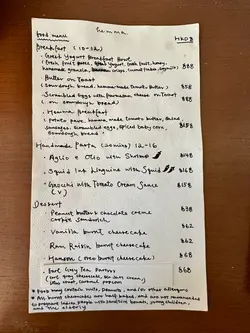 hamma
food menu HKD $
Breakfast (10-12)
· Greek Yogurt Breakfast Bowl $88
(fresh fruit, Greek yogurt, fresh fruit, honey,
homemade granola, crisps, )
· Butter on Toast $58
(sourdough bread, homemade tomato butter)
· Scrambled Eggs with Parmesan cheese on Toast $88
(on sourdough bread)
· Hamma Breakfast
(potato pave, hamma made tomato butter, salad
sausages, scrambled eggs, spiced baby corn, $158
sourdough bread)
Handmade Pasta (evening) 12-16
· Aglio e Olio with Shrimp $148
· Squid Ink Linguine with Squid $168
· Gnocchi with Tomato Cream Sauce $158
(V)
Dessert
· Peanut butter & chocolate creme $38
cookie sandwich
· Vanilla burnt cheesecake $62
· Rum Raisin burnt cheesecake $62
· Hamma (oreo burnt cheesecake) $68
· Earl Grey Tea Parfait $68
(earl grey cheesecake, ice cream,
caramel popcorn)
* Food may contain nuts, peanuts, and/or other allergens
* All hamma cheesecakes are half baked, and are not recommended
to pregnant ladies, people with sensitive bowels, young children,
and